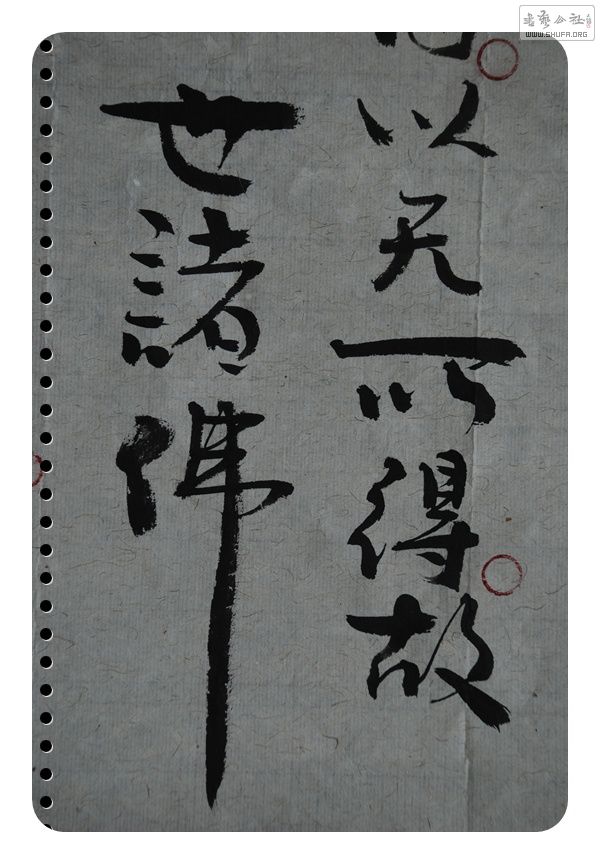 以无所得故
世諸佛
書藝公社
WWW.SHUFA.ORG